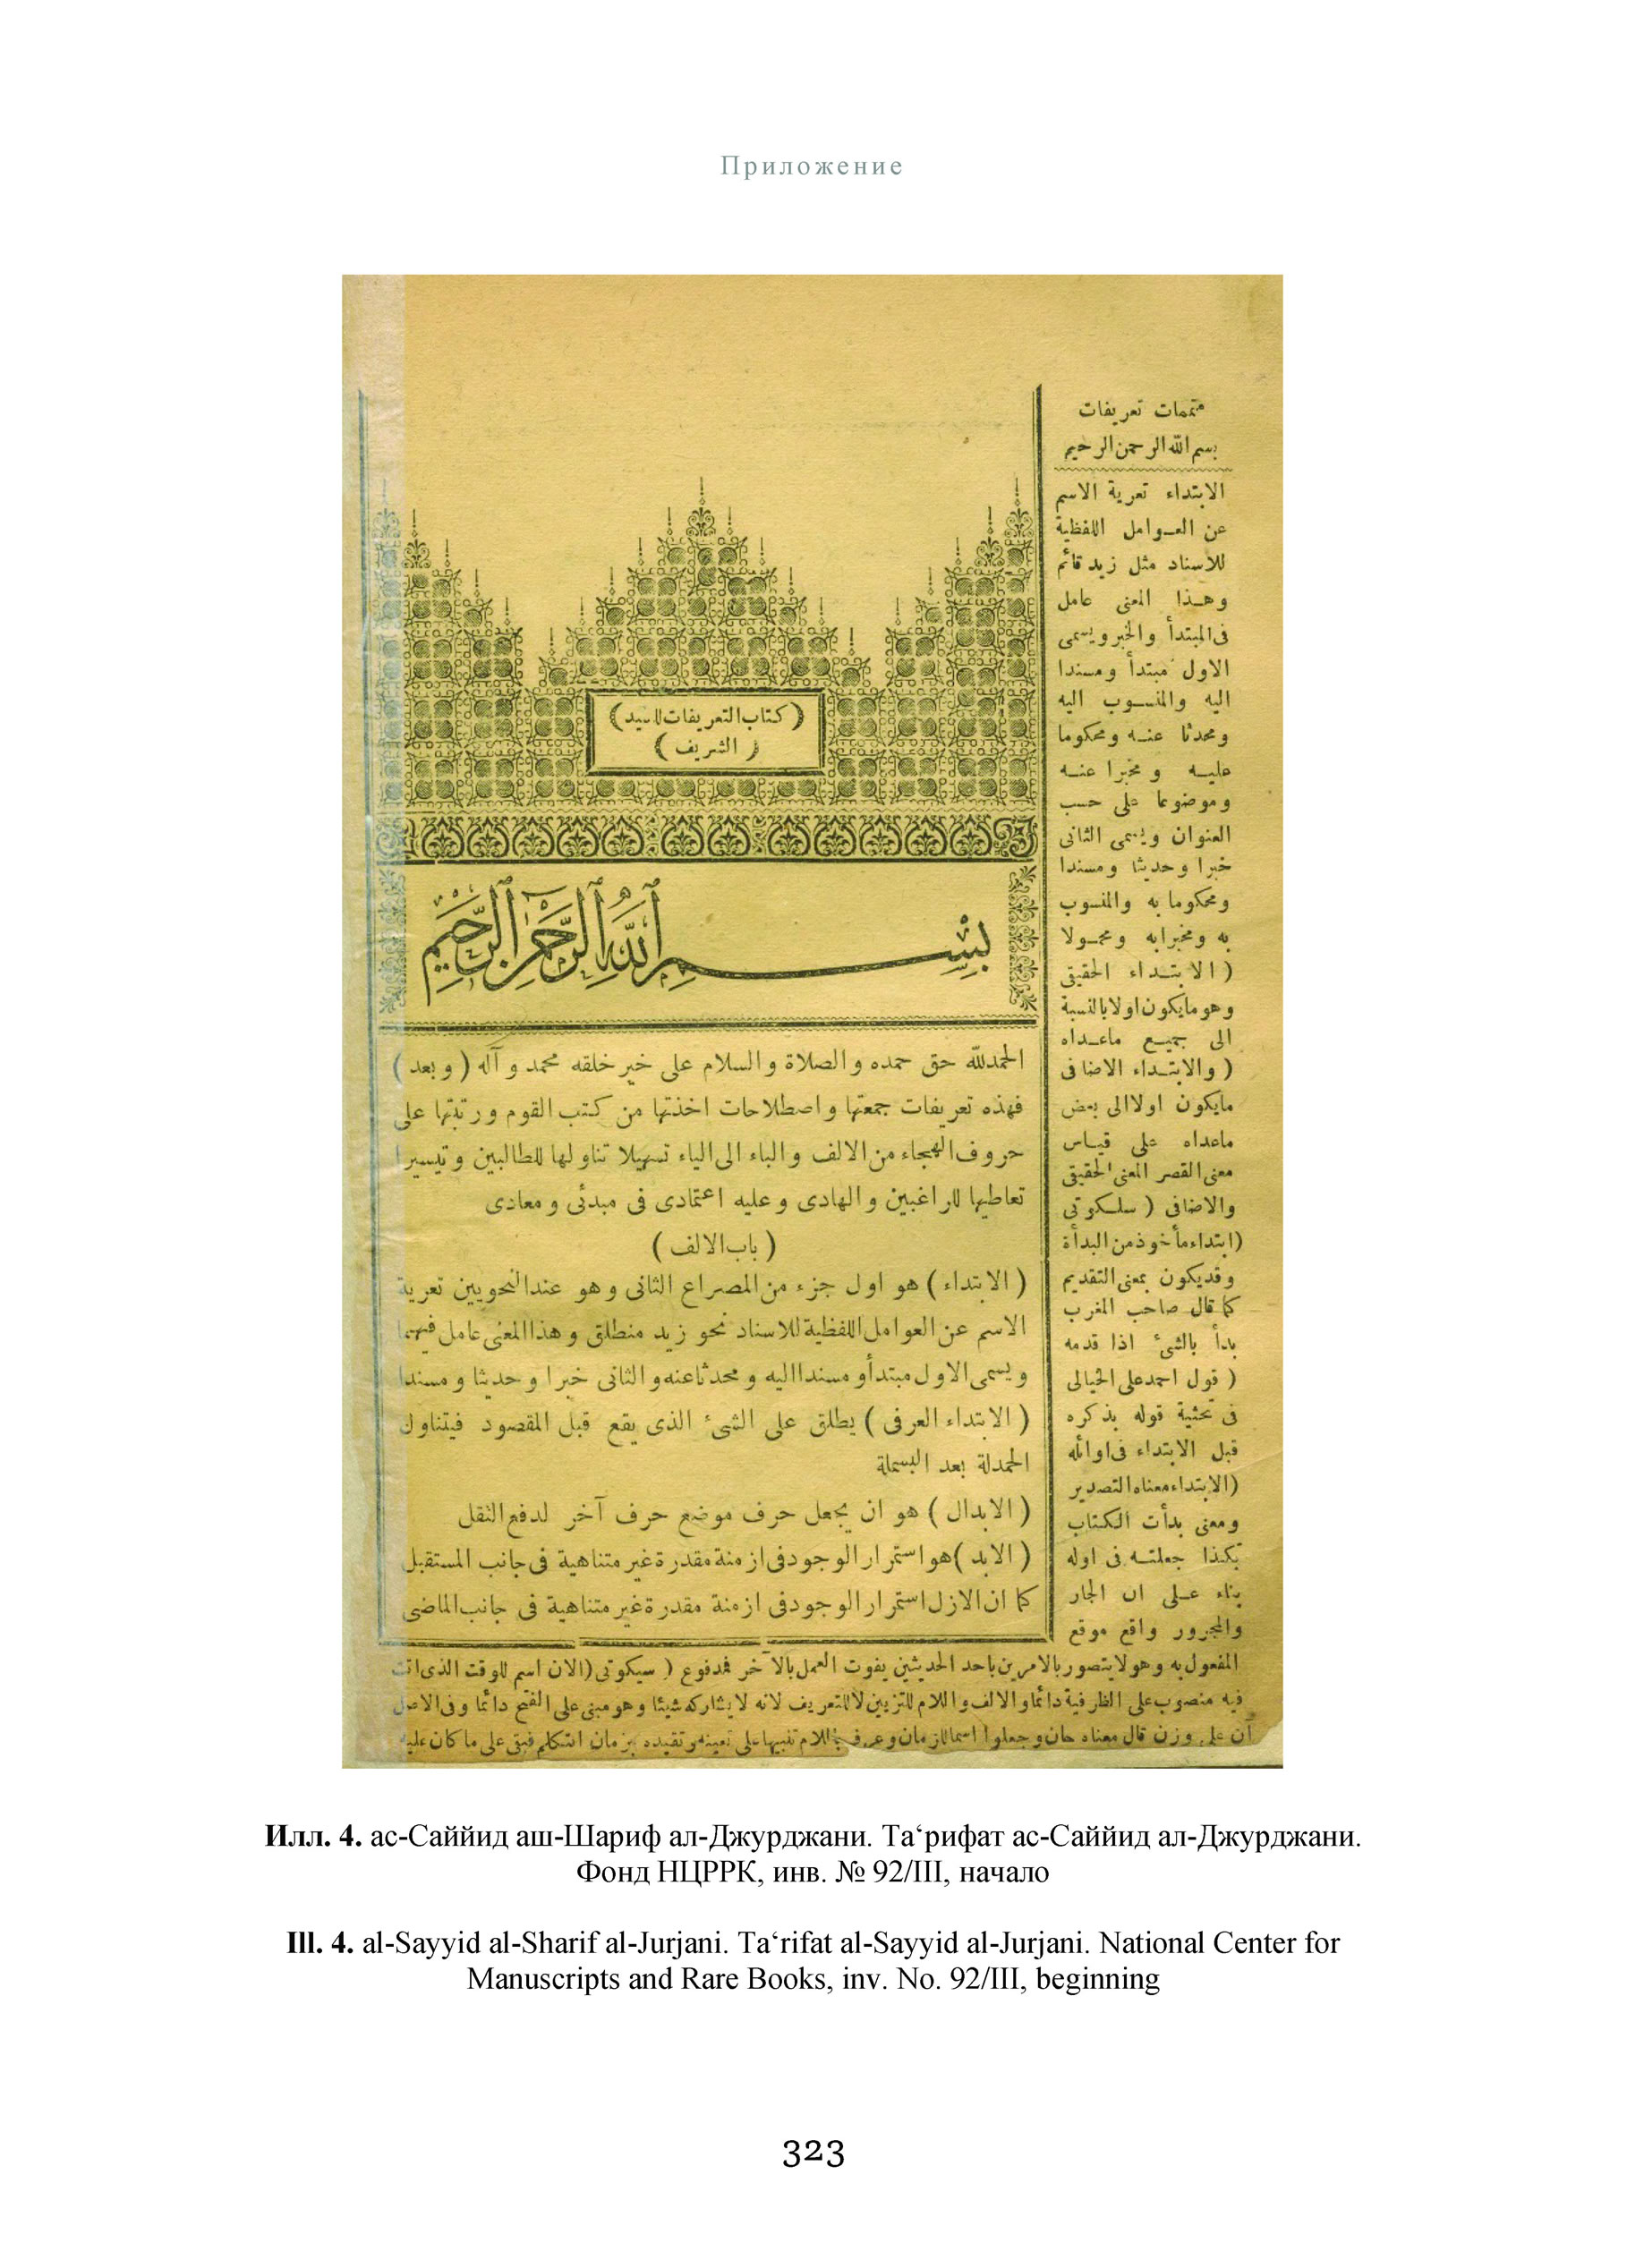 Приложение
متممات تعريفات
بسم الله الرحمن الرحيم
الابتداء تعرية الاسم
عن العوامل اللفظية
للاسناد مثل زيد قائم
وهذا المعنى عامل
فى المبتدأ والخبر ويسمى
الاول مبتدأ ومسندا
اليه والمنسوب اليه
ومحدثا عنه ومحكوما
عليه و مخبرا عنه
وموضوعا على حسب
العنوان ويسمى الثانى
خبرا وحديثا ومسندا
ومحكوما به والمنسوب
به ومخبرابه ومحمولا
(الابتداء الحقيقى
وهو مايكون اولا بالنسبة
الى جميع ماعداه
(والابتداء الاضافى
مايكون اولا الى بعض
ماعداه على قياس
معنى القصر المعنى الحقيقى
والاضافى (سلكوتى
(ابتداء مأخوذ من البدأة
وقديكون بمعنى التقديم
كما قال صاحب المغرب
بدأ بالشىء اذا قدمه
(قول احمد على الخيالى
فى تحثية قوله بذكره
قبل الابتداء فى اوائله
(الابتداء معناه التصدير
ومعنى بدأت الكتاب
بكذا جعلته فى اوله
بناء على ان الجار
والمجرور واقع موقع
(كتاب التعريفات للسيد)
(الشريف)
بسم الله الرحمن الرحيم
الحمدلله حق حمده والصلاة والسلام على خير خلقه محمد وآله (وبعد)
فهذه تعريفات جمعتها واصطلاحات اخذتها من كتب القوم ورتبتها على
حروف الهجاء من الالف والباء الى الياء تسهيلا تناولها للطالبين وتيسيرا
تعاطيها للراغبين والهادى وعليه اعتمادى فى مبدئى ومعادى
(باب الالف)
(الابتداء) هو اول جزء من المصراع الثانى وهو عند النحويين تعرية
الاسم عن العوامل اللفظية للاسناد نحو زيد منطلق وهذا المعنى عامل فيهما
ويسمى الاول مبتدأ ومسندا اليه ومحدثا عنه والثانى خبرا وحديثا ومسندا
(الابتداء العرفى) يطلق على الشىء الذى يقع قبل المقصود فيتناول
الحمدلة بعد البسملة
(الابدال) هو ان يجعل حرف موضع حرف آخر لدفع الثقل
(الابد) هو استمرار الوجود فى ازمنة مقدرة غير متناهية فى جانب المستقبل
كما ان الازل استمرار الوجود فى ازمنة مقدرة غير متناهية فى جانب الماضى
المفعول به وهو لا يتصور بالامرين باحد الحديثين يفوت العمل بالآخر فمدفوع (سيكوتى (الان اسم للوقت الذى انت
فيه منصوب على الظرفية دائما والالف واللام للتزيين لا للتعريف لانه لا يشاركه شيئا وهو مبنى على الفتح دائما وفى الاصل
آن على وزن قال معناه حان وجعلوا اسما للزمان وعرف باللام تنبيها على تعينه وتقيده بزمان التكلم فبقى على ما كان عليه
Илл. 4. ас-Саййид аш-Шариф ал-Джурджани. Та‘рифат ас-Саййид ал-Джурджани.
Фонд НЦРРК, инв. № 92/III, начало
Ill. 4. al-Sayyid al-Sharif al-Jurjani. Ta‘rifat al-Sayyid al-Jurjani. National Center for
Manuscripts and Rare Books, inv. No. 92/III, beginning
323